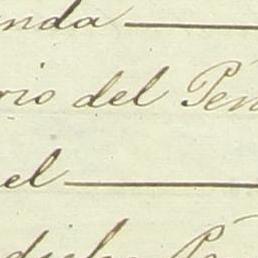 nda
rio del Pén
el